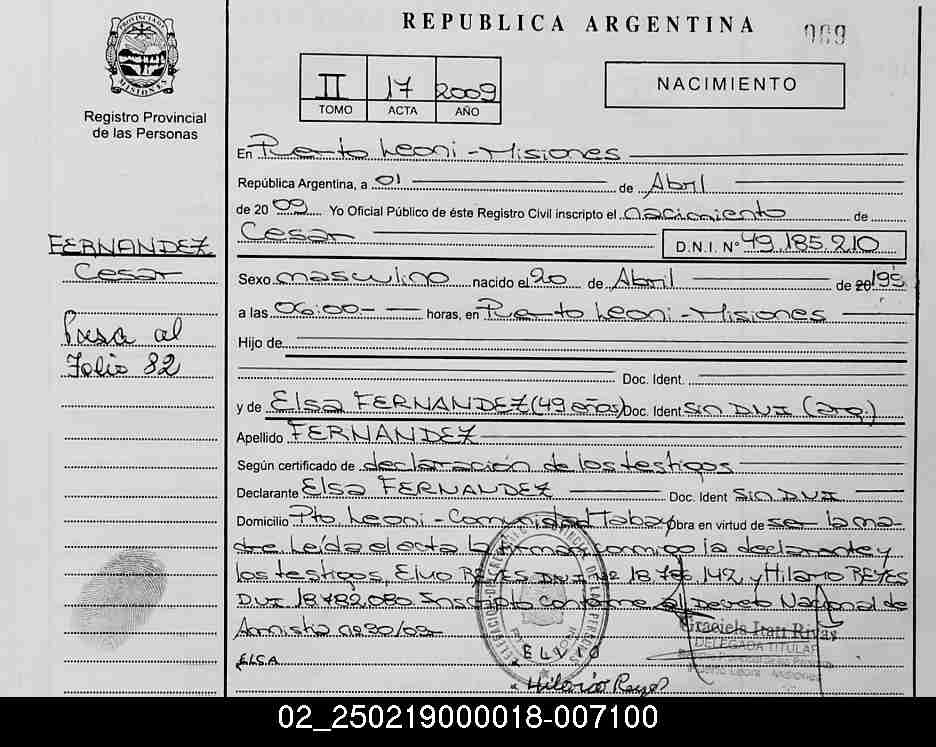 PROVINCIA DE
MISIONES
Registro Provincial
de las Personas
REPUBLICA ARGENTINA
009
II 17 2009
TOMO ACTA AÑO
NACIMIENTO
En Puerto Leoni - Misiones
República Argentina, a 01 de Abril
de 2009 Yo Oficial Público de éste Registro Civil inscripto el nacimiento de
Cesar D.N.I. Nº 49.185.210
Sexo masculino nacido el 20 de Abril de 20 1995
a las 06:00 horas, en Puerto Leoni - Misiones
Hijo de
Doc. Ident.
y de Elsa FERNANDEZ (49 años) Doc. Ident sin DNI (arg.)
Apellido FERNANDEZ
Según certificado de declaración de los testigos
Declarante Elsa FERNANDEZ Doc. Ident sin DNI
Domicilio Pto Leoni - Comunidad Tabay Obra en virtud de ser la ma-
dre leída el acta la firman conmigo la declarante y
los testigos, Elvio REYES DNI Nº 18.766.142 y Hilario REYES
DNI 18.782.080. Inscripto conforme al Decreto Nacional de
Amnistia nº 90/09
FERNANDEZ
Cesar
Pasa al
Folio 82
ELSA
ELVIO
Hilario Reyes
Graciela Itatí Rivas
DELEGADA TITULAR
02_250219000018-007100